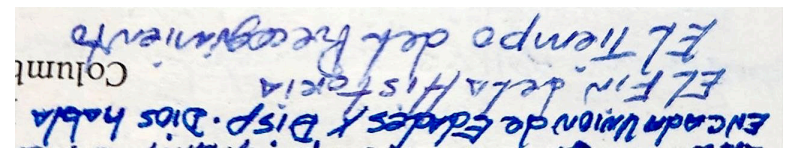 ENCADA Union de Edades y Disp. Dios habla
EL Fin de la Historia
EL Tiempo del Recogimiento